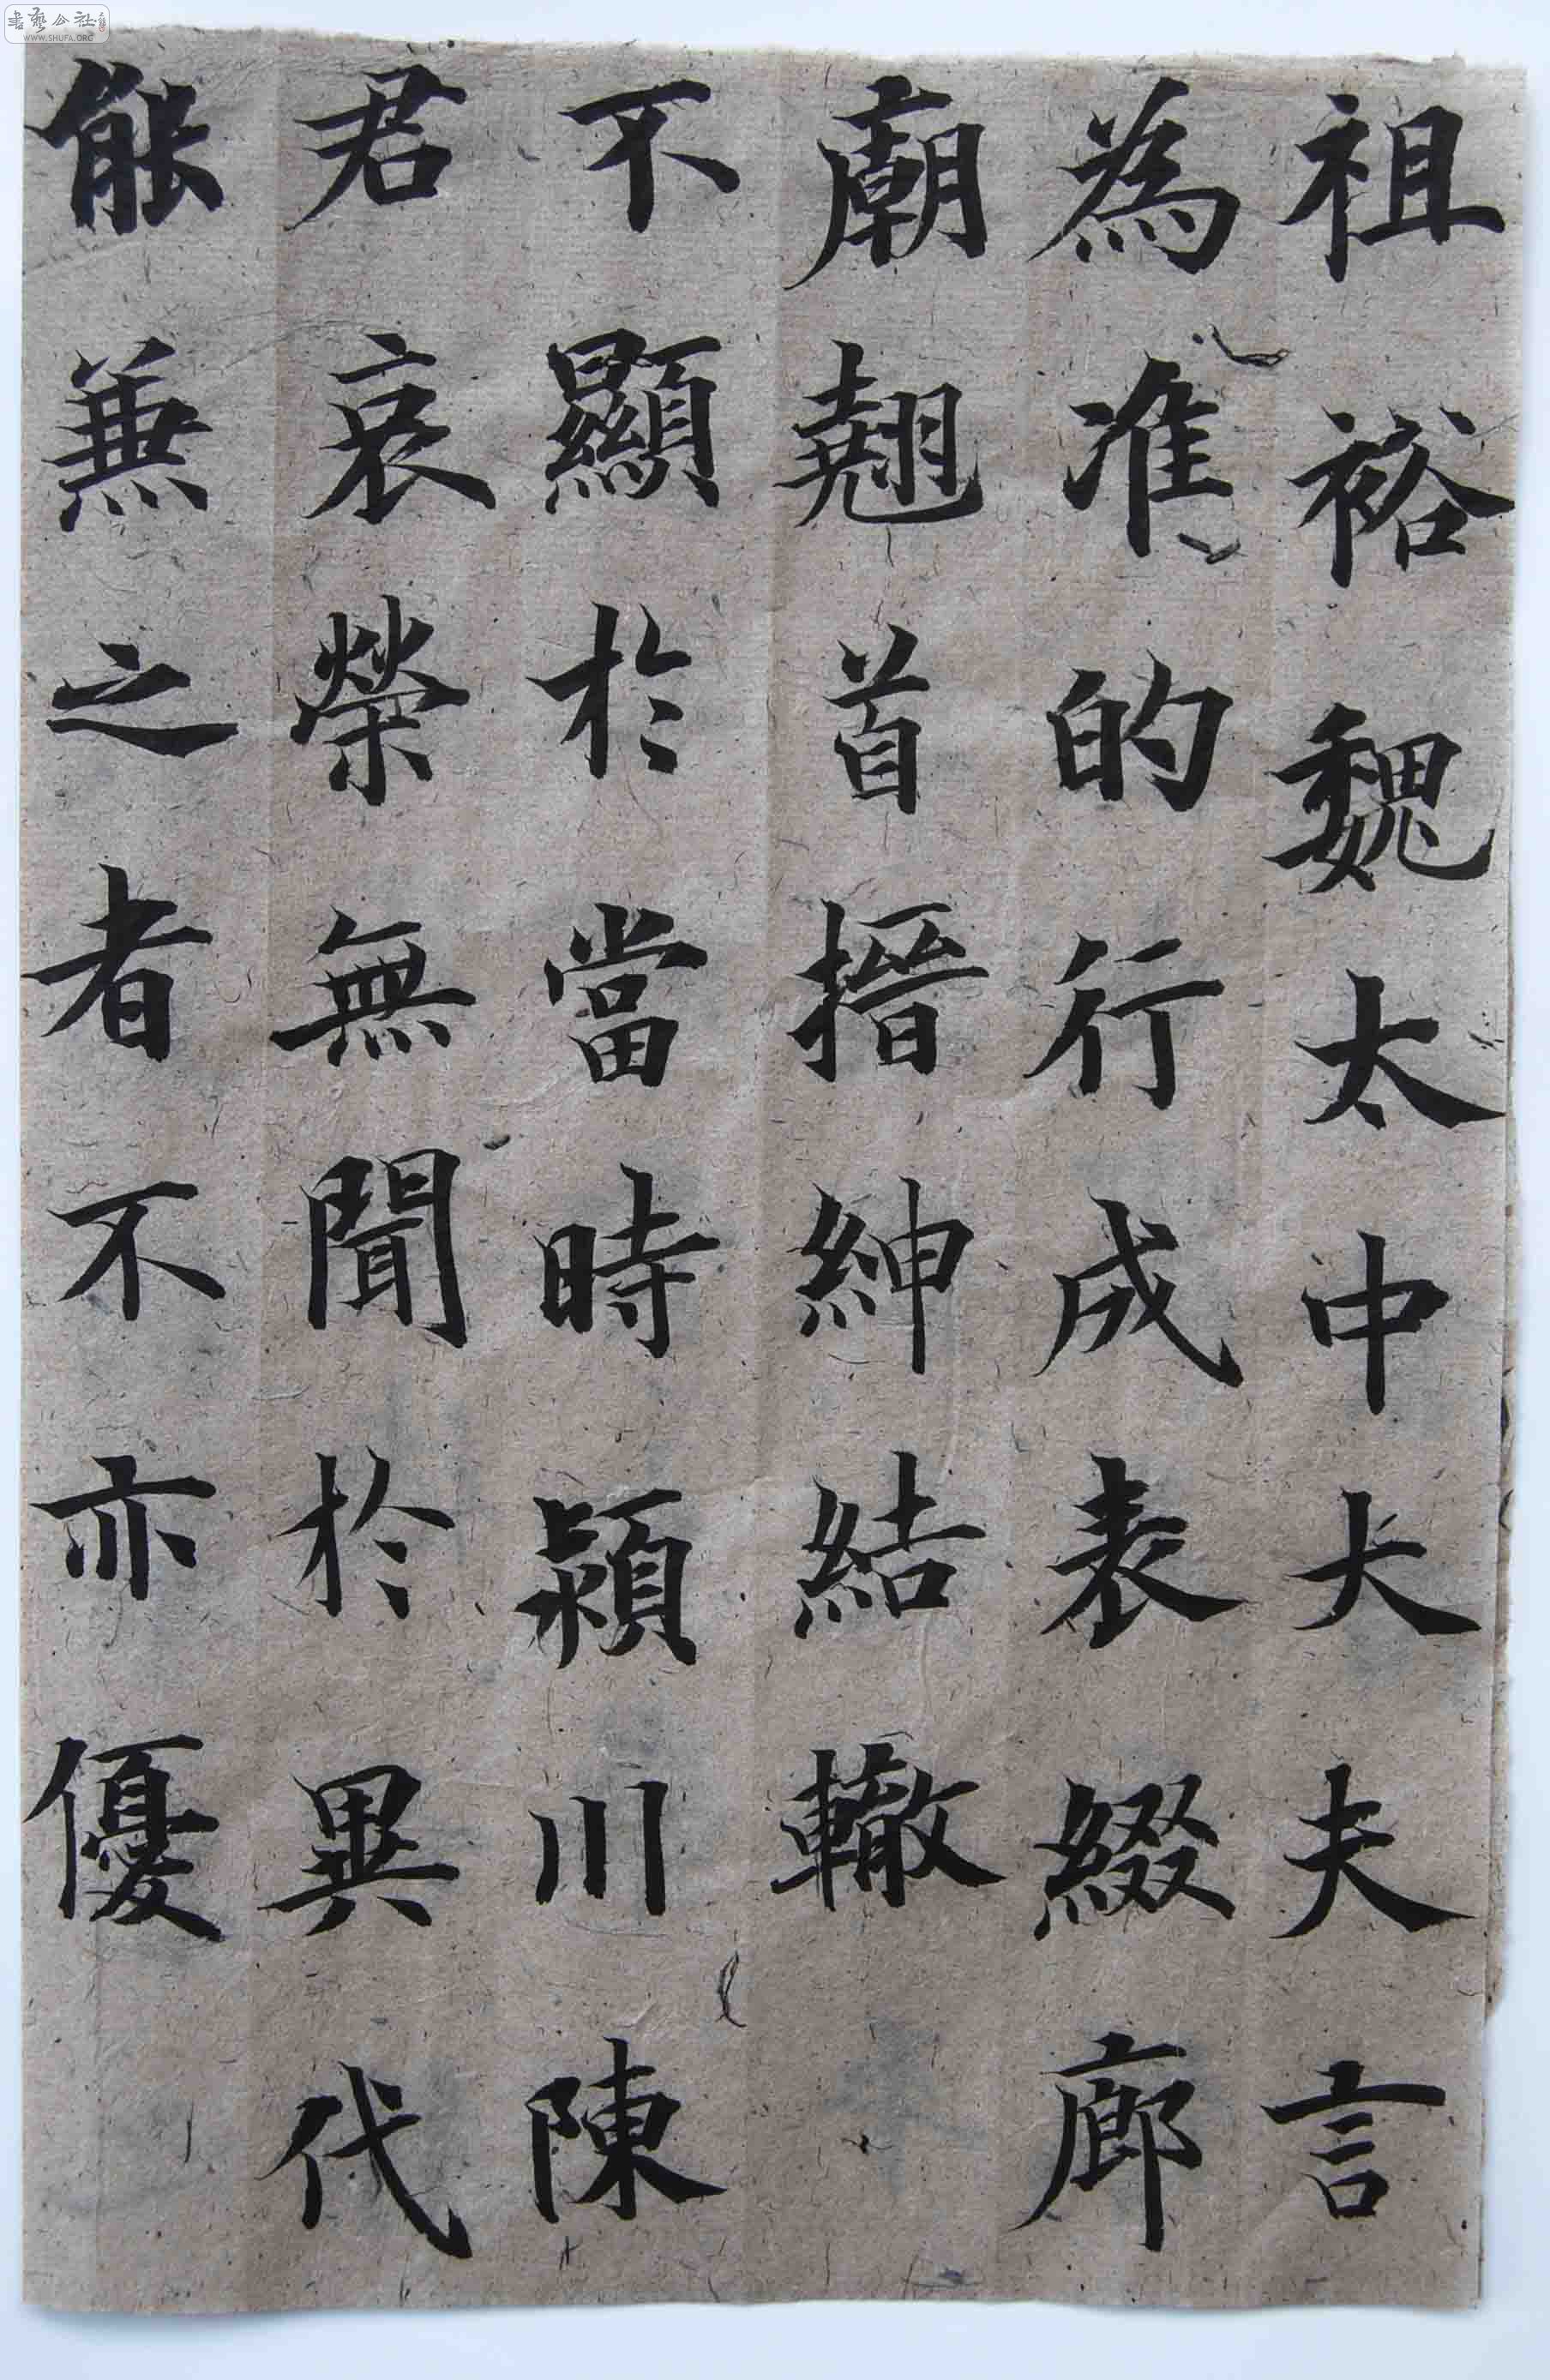 祖裕魏太中大夫言
為准的行成表綴廊
廟翹首搢紳結轍
不顯於當時潁川陳
君哀榮無聞於異代
能兼之者不亦優
書藝公社
WWW.SHUFA.ORG